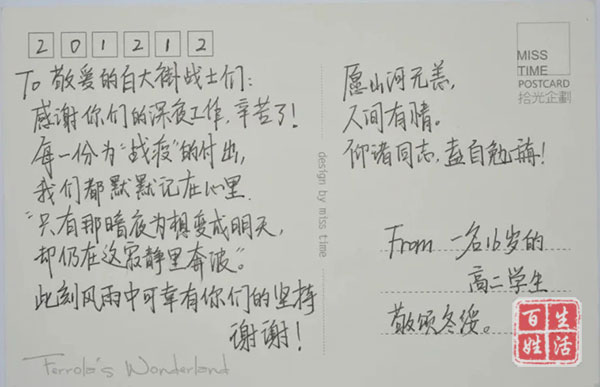 201212
To 敬爱的白大褂战士们:
感谢你们的深夜工作,辛苦了!
每一份为"战疫"的付出,
我们都默默记在心里.
"只有那暗夜为想变成明天,
却仍在这寂静里奔波"。
此刻风雨中可幸有你们的坚持
谢谢!
Ferrola's Wonderland
design by miss time
MISS
TIME
POSTCARD
拾光企劃
愿山河无恙,
人间有情。
仰诸同志,盍自勉旃!
From 一名16岁的
高二学生
敬颂冬绥。
百姓生活